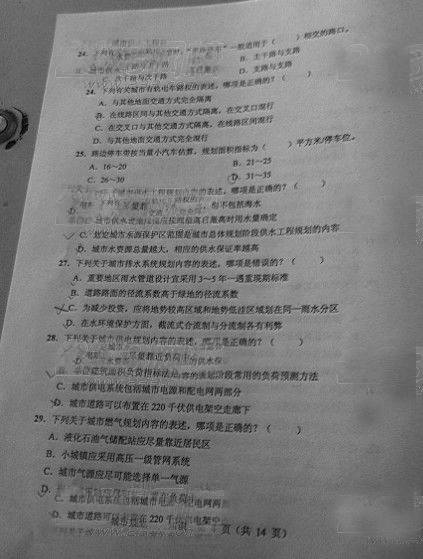 一般适用于（　）相交的路口。
B. 主干路与支路
C. 次干路与次干路
D. 支路与支路
24. 下列有关城市有轨电车路权的表述，哪项是正确的？（　）
A. 与其他地面交通方式完全隔离
B. 在线路区间与其他交通方式隔离，在交叉口混行
C. 在交叉口与其他交通方式隔离，在线路区间混行
D. 与其他地面交通方式完全混行
25. 路边停车带按当量小汽车估算，规划面积指标为（　）平方米/停车位。
A. 16~20
B. 21~25
C. 26~30
D. 31~35
的表述，哪项是正确的？（　）
但不包括海水
最高日最高时用水量确定
C. 划定城市水源保护区范围是城市总体规划阶段供水工程规划的内容
D. 城市水资源总量越大，相应的供水保证率越高
27. 下列关于城市排水系统规划内容的表述，哪项是错误的？（　）
A. 重要地区雨水管道设计宜采用3～5年一遇重现期标准
B. 道路路面的径流系数高于绿地的径流系数
C. 为减少投资，应将地势较高区域和地势低洼区域划在同一雨水分区
D. 在水环境保护方面，截流式合流制与分流制各有利弊
28. 下列关于城市供电规划内容的表述，哪项是正确的？（　）
尽量靠近负荷中心
阶段常用的负荷预测方法
C. 城市供电系统包括城市电源和配电网两部分
D. 城市道路可以布置在220千伏供电架空走廊下
29. 下列关于城市燃气规划内容的表述，哪项是正确的？（　）
A. 液化石油气储配站应尽量靠近居民区
B. 小城镇应采用高压一级管网系统
C. 城市气源应尽可能选择单一气源
D.
C. 城市供电系统包括城市电源和配电网两
D. 城市道路可以布置在220千伏供电架空
页（共 14 页）